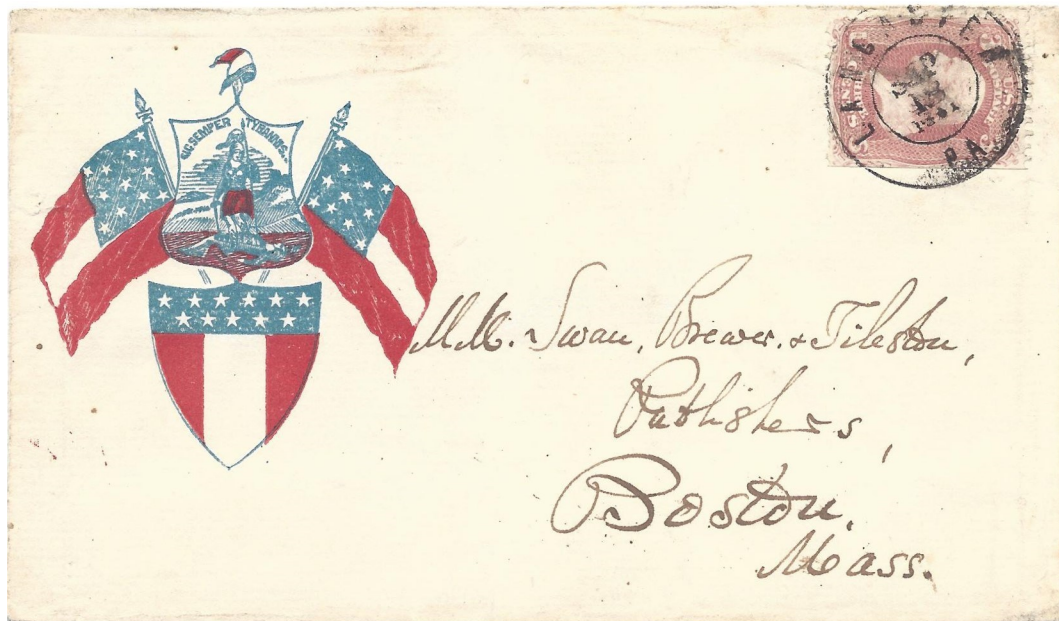 SIC SEMPER TYRANNIS
LANCASTER
PA.
U.S. POSTAGE
THREE CENTS
M.M. Swan, Brewer, & Tileston,
Publishers,
Boston,
Mass.